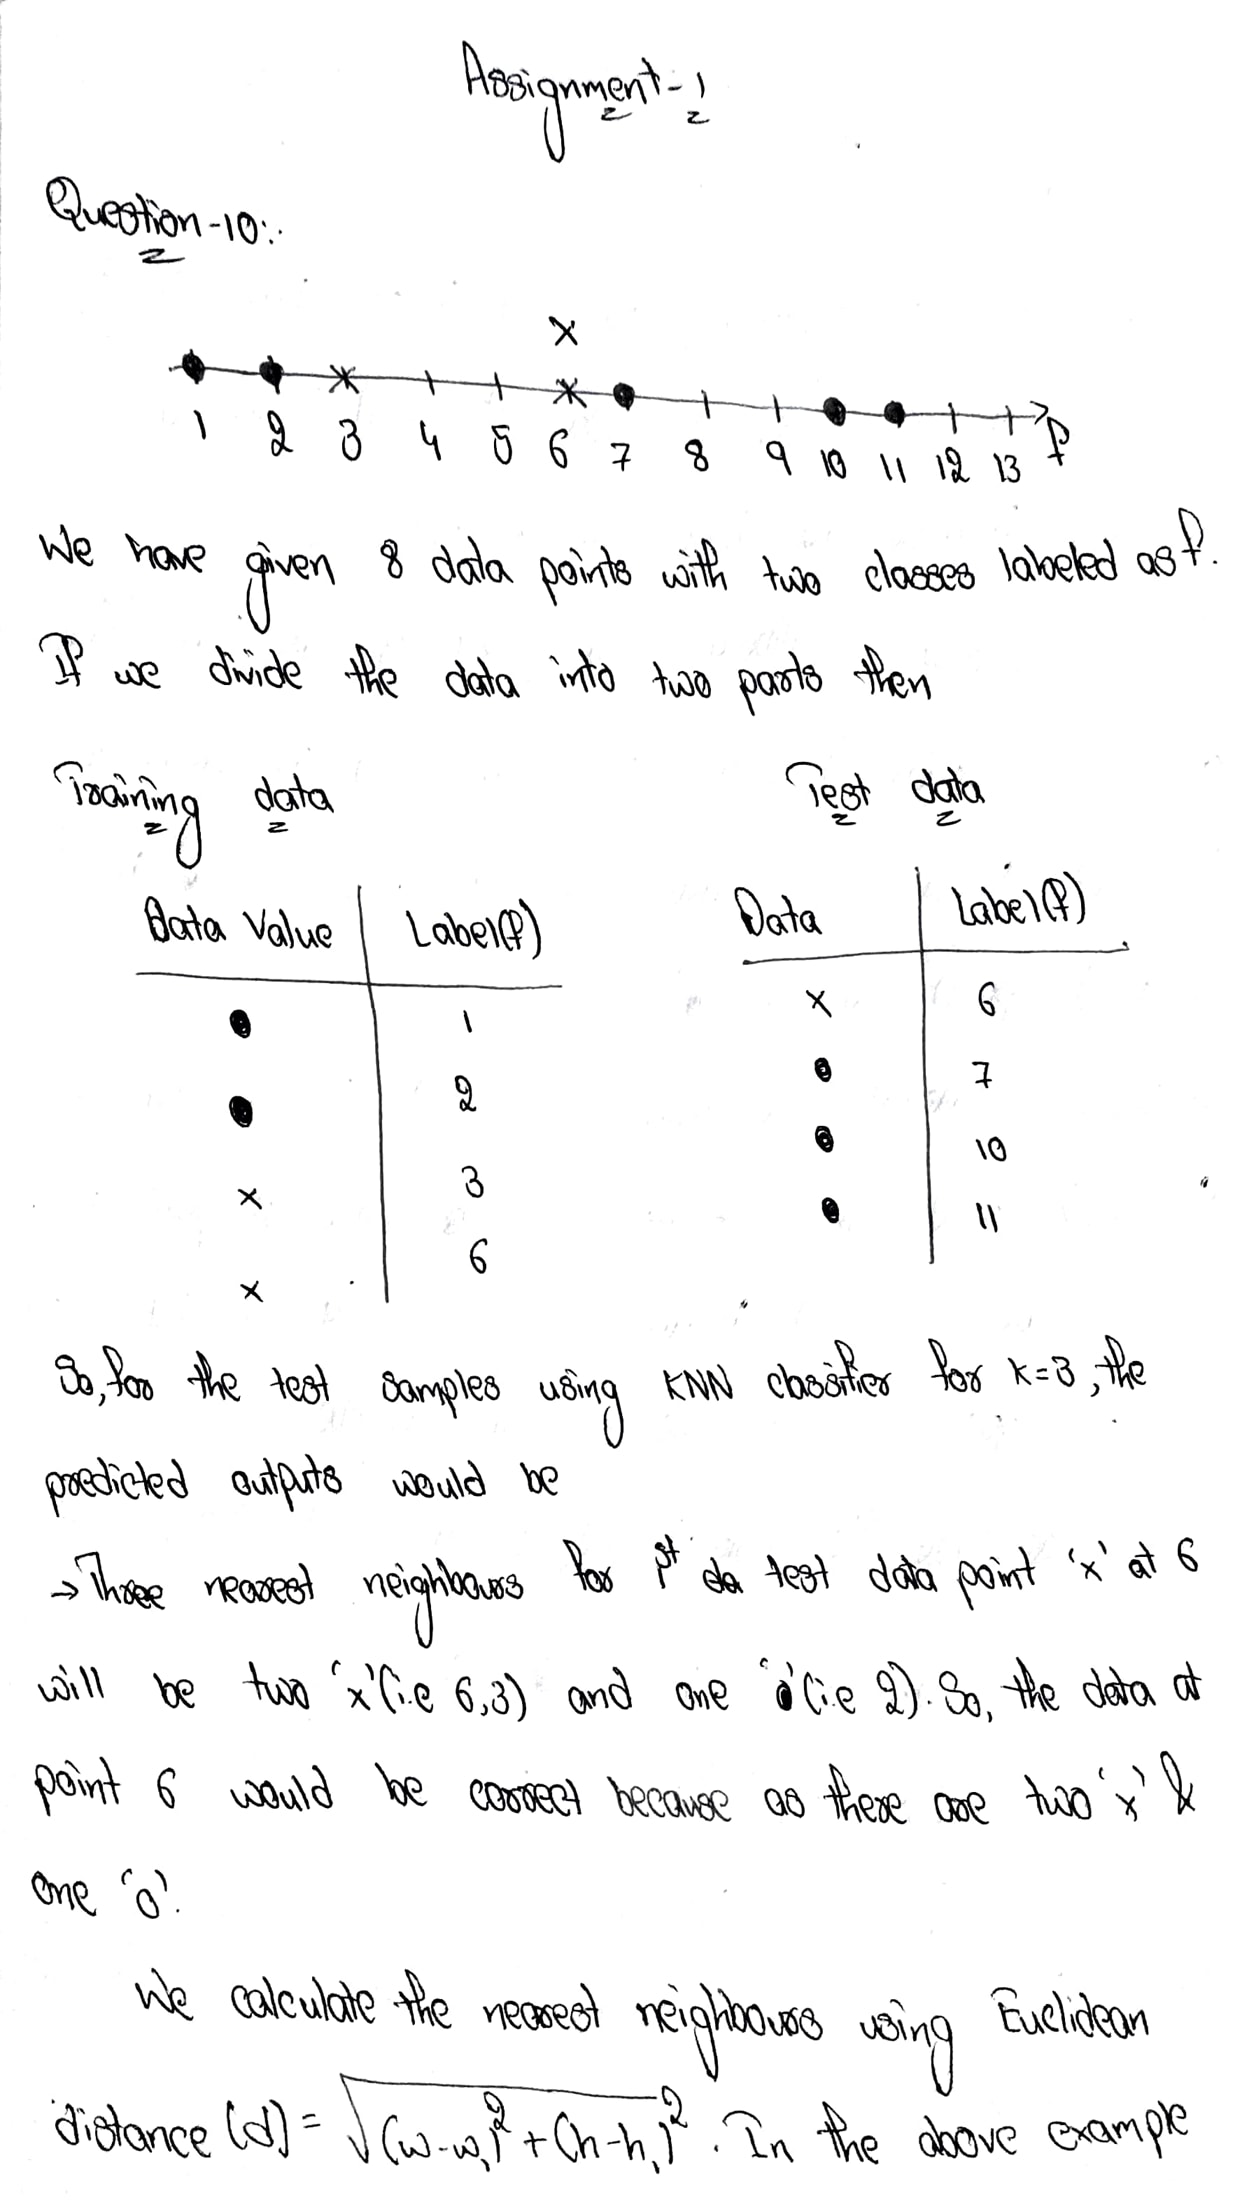 Assignment-1
Question-10:
x
1 2 3 4 5 6 7 8 9 10 11 12 13 f
We have given 8 data points with two classes labeled as f.
If we divide the data into two parts then
Training data Test data
Data Value Label(f) Data Label(f)
● 1 x 6
● 2 ● 7
x 3 ● 10
x 6 ● 11
So, for the test samples using KNN classifier for K=3, the
predicted outputs would be
→ Three nearest neighbours for 1st da test data point 'x' at 6
will be two 'x' (i.e 6,3) and one 'o' (i.e 2). So, the data at
point 6 would be correct because as there are two 'x' &
one 'o'.
We calculate the nearest neighbours using Euclidean
distance (d) = √(w-w₁)² + (h-h₁)². In the above example